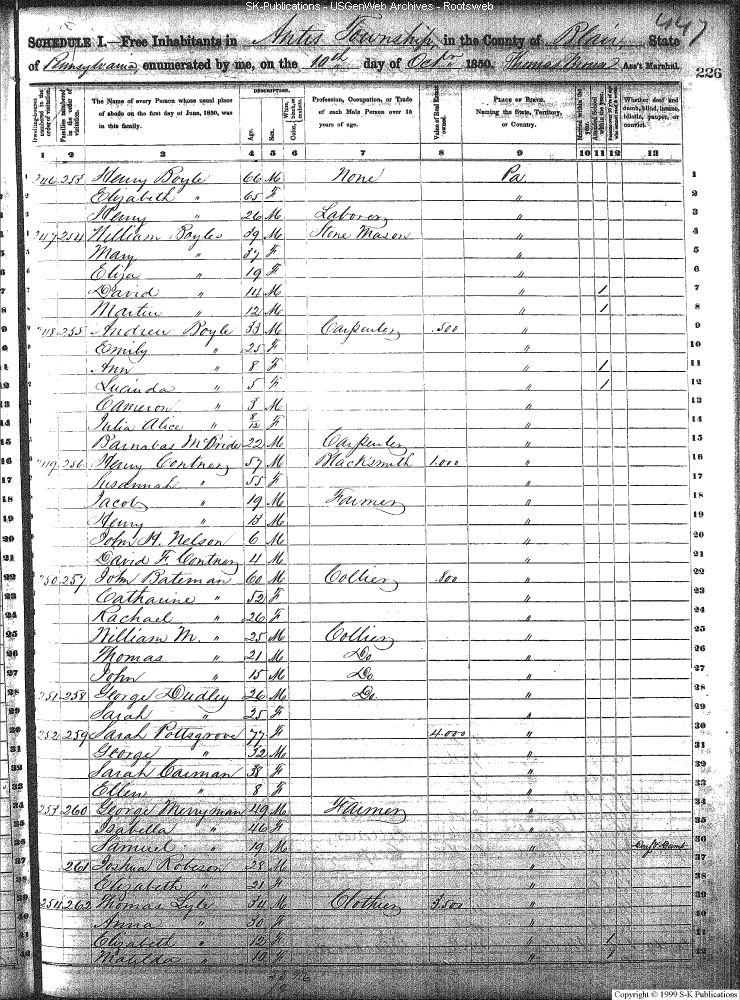 SK-Publications - USGenWeb Archives - Rootsweb
447
SCHEDULE I.—Free Inhabitants in Antis Township in the County of Blair State
of Pennsylvania, enumerated by me, on the 10th day of Octr. 1850. Ass't Marshal.
226
DESCRIPTION.
Dwelling-houses numbered in the order of visitation.
Families numbered in the order of visitation.
The Name of every Person whose usual place of abode on the first day of June, 1850, was in this family.
Age.
Sex.
Color,
Profession, Occupation, or Trade of each Male Person over 15 years of age.
Value of Real Estate owned.
PLACE OF BIRTH. Naming the State, Territory, or Country.
Married within the year.
Whether deaf and dumb, blind, insane, idiotic, pauper, or convict.
1 2 3 4 5 6 7 8 9 10 11 12 13
246 253 Henry Boyle 66 M None Pa 1
Elizabeth " 65 F " 2
Henry " 26 M Laborer " 3
247 254 William Boyles 39 M Stone Mason " 4
Mary " 37 F " 5
Eliza " 19 F " 6
David " 14 M " / 7
Martin " 12 M " / 8
248 255 Andrew Boyle 33 M Carpenter 500 " 9
Emily " 25 F " 10
Ann " 8 F " / 11
Lucinda " 5 F " / 12
Cameron " 3 M " 13
Julia Alice " 8/12 F " 14
Barnabas McBride 22 M Carpenter " 15
249 256 Henry Contner 57 M Blacksmith 1.000 " 16
Susannah " 55 F " 17
Jacob " 19 M Farmer " 18
Henry " 13 M " 19
John H. Nelson 6 M " 20
David F. Contner 4 M " 21
250 257 John Bateman 60 M Collier 800 " 22
Catharine " 52 F " 23
Rachael " 26 F " 24
William M. " 25 M Collier " 25
Thomas " 21 M Do " 26
John " 15 M Do " 27
251 258 George Dudley 26 M Do " 28
Sarah " 25 F " 29
252 259 Sarah Pottsgrove 77 F 4.000 " 30
George " 32 M " 31
Sarah Carman 38 F " 32
Ellen " 8 F " 33
253 260 George Merryman 49 M Farmer " 34
Isabella " 46 F " 35
Samuel " 19 M " Deaf & Dumb 36
261 Joshua Robeson 28 M " 37
Elizabeth " 21 F " 38
254 262 Thomas Lyle 34 M Clothier 3.500 " 39
Anna " 30 F " 40
Elizabeth " 12 F " / 41
Matilda " 10 F " / 42
Copyright © 1999 S-K Publications